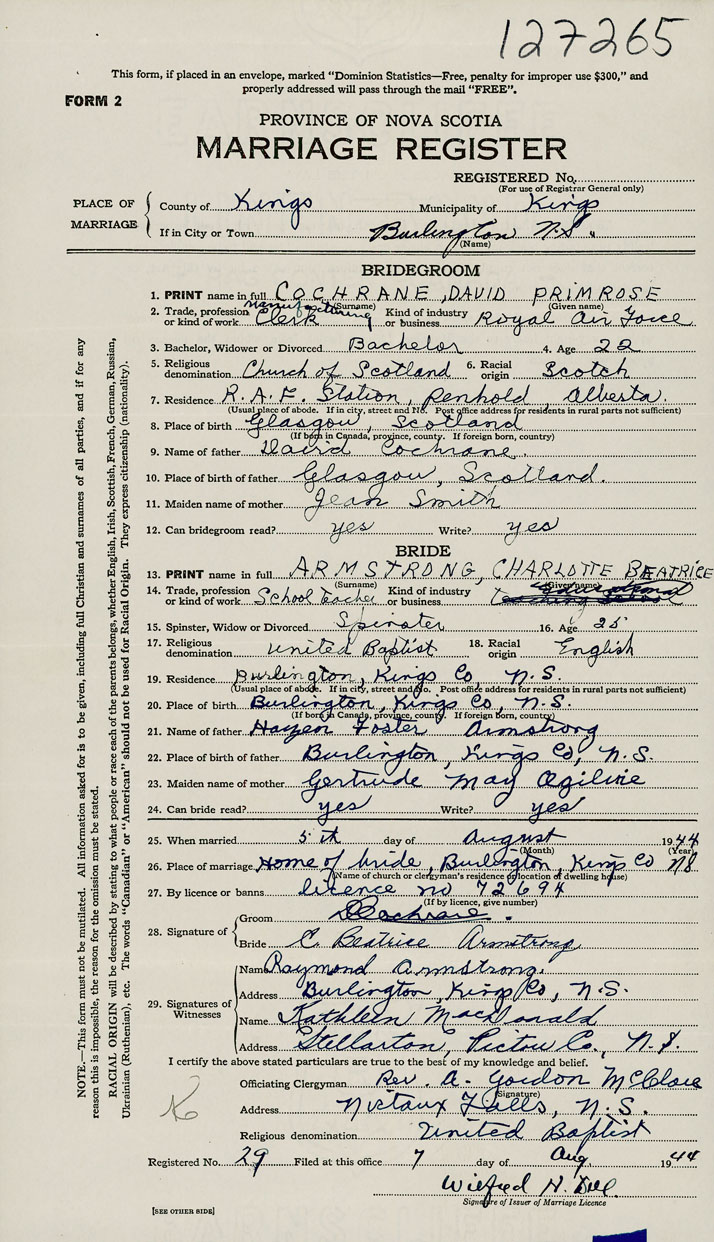 127265
This form, if placed in an envelope, marked "Dominion Statistics—Free, penalty for improper use $300," and
properly addressed will pass through the mail "FREE".
FORM 2
PROVINCE OF NOVA SCOTIA
MARRIAGE REGISTER
REGISTERED No.
(For use of Registrar General only)
PLACE OF MARRIAGE
County of Kings Municipality of Kings
If in City or Town Burlington N.S.
(Name)
BRIDEGROOM
1. PRINT name in full COCHRANE, DAVID PRIMROSE
(Surname) (Given name)
2. Trade, profession or kind of work Manufacturing Clerk Kind of industry or business Royal Air Force
3. Bachelor, Widower or Divorced Bachelor 4. Age 22
5. Religious denomination Church of Scotland 6. Racial origin Scotch
7. Residence R.A.F. Station, Penhold, Alberta.
(Usual place of abode. If in city, street and No. Post office address for residents in rural parts not sufficient)
8. Place of birth Glasgow, Scotland
(If born in Canada, province, county. If foreign born, country)
9. Name of father David Cochrane.
10. Place of birth of father Glasgow, Scotland.
11. Maiden name of mother Jean Smith
12. Can bridegroom read? yes Write? yes
BRIDE
13. PRINT name in full ARMSTRONG, CHARLOTTE BEATRICE
(Surname) (Given name)
14. Trade, profession or kind of work School Teacher Kind of industry or business
15. Spinster, Widow or Divorced Spinster 16. Age 25
17. Religious denomination United Baptist 18. Racial origin English
19. Residence Burlington, Kings Co, N.S.
(Usual place of abode. If in city, street and No. Post office address for residents in rural parts not sufficient)
20. Place of birth Burlington, Kings Co, N.S.
(If born in Canada, province, county. If foreign born, country)
21. Name of father Foster Armstrong
22. Place of birth of father Burlington, Kings Co, N.S.
23. Maiden name of mother Gertrude May Ogilvie
24. Can bride read? yes Write? yes
25. When married 5th day of August 1944
(Month) (Year)
26. Place of marriage Home of bride, Burlington, Kings Co NS
(Name of church or clergyman's residence or location of dwelling house)
27. By licence or banns licence no 72694
(If by licence, give number)
28. Signature of Groom DCochrane.
Bride C. Beatrice Armstrong
29. Signatures of Witnesses
Name Raymond Armstrong.
Address Burlington, Kings Co, N.S.
Name Kathleen MacDonald
Address Stellarton, Pictou Co., N.S.
I certify the above stated particulars are true to the best of my knowledge and belief.
Officiating Clergyman Rev. A. Gordon McClare
(Signature)
Address Nictaux Falls, N.S.
Religious denomination United Baptist
Registered No. 29 Filed at this office 7 day of Aug 1944
Wilfred H. Dill
Signature of Issuer of Marriage Licence
[SEE OTHER SIDE]
NOTE.—This form must not be mutilated. All information asked for is to be given, including full Christian and surnames of all parties, and if for any
reason this is impossible, the reason for the omission must be stated.
RACIAL ORIGIN will be described by stating to what people or race each of the parents belongs, whether English, Irish, Scottish, French, German, Russian,
Ukrainian (Ruthenian), etc. The words "Canadian" or "American" should not be used for Racial Origin. They express citizenship (nationality).